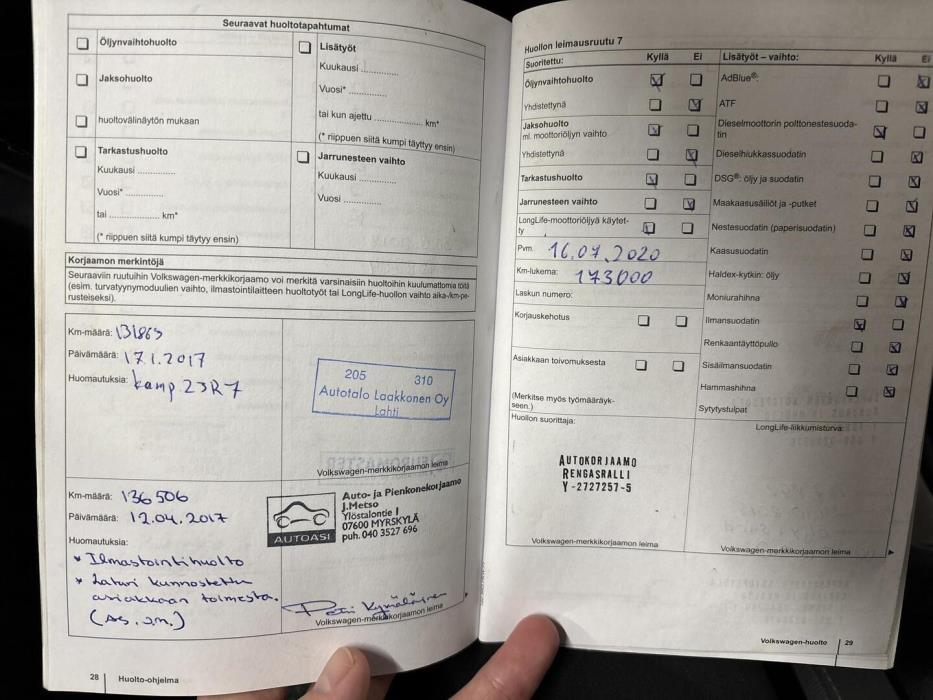 Seuraavat huoltotapahtumat
Öljynvaihtohuolto
Jaksohuolto
huoltovälinäytön mukaan
Tarkastushuolto
Kuukausi .............
Vuosi* .............
tai ................. km*
(* riippuen siitä kumpi täytyy ensin)
Lisätyöt
Kuukausi .............
Vuosi* .............
tai kun ajettu ............... km*
(* riippuen siitä kumpi täyttyy ensin)
Jarrunesteen vaihto
Kuukausi .............
Vuosi .............
Korjaamon merkintöjä
Seuraaviin ruutuihin Volkswagen-merkkikorjaamo voi merkitä varsinaisiin huoltoihin kuulumattomia töitä
(esim. turvatyynymoduulien vaihto, ilmastointilaitteen huoltotyöt tai LongLife-huollon vaihto aika-/km-pe-
rusteiseksi).
Km-määrä: 131863
Päivämäärä: 17.1.2017
Huomautuksia: kamp. 23R7
205 310
Autotalo Laakkonen Oy
Lahti
Volkswagen-merkkikorjaamon leima
Km-määrä: 136506
Päivämäärä: 12.04.2017
Huomautuksia:
* Ilmastointihuolto
* Laturi kunnostettu
asiakkaan toimesta.
AUTOASI
Auto- ja Pienkonekorjaamo
J.Metso
Ylöstalontie 1
07600 MYRSKYLÄ
puh. 040 3527 696
Volkswagen-merkkikorjaamon leima
28 Huolto-ohjelma
Huollon leimausruutu 7
Suoritettu: Kyllä Ei
Öljynvaihtohuolto
Yhdistettynä
Jaksohuolto
ml. moottoriöljyn vaihto
Yhdistettynä
Tarkastushuolto
Jarrunesteen vaihto
LongLife-moottoriöljyä käytet-
ty
Pvm. 16.07.2020
Km-lukema: 173000
Laskun numero:
Korjauskehotus
Asiakkaan toivomuksesta
(Merkitse myös työmääräyk-
seen.)
Huollon suorittaja:
AUTOKORJAAMO
RENGASRALLI
Y-2727257-5
Volkswagen-merkkikorjaamon leima
Lisätyöt – vaihto: Kyllä Ei
AdBlue®:
ATF
Dieselmoottorin polttonestesuoda-
tin
Dieselhiukkassuodatin
DSG®: öljy ja suodatin
Maakaasusäiliöt ja -putket
Nestesuodatin (paperisuodatin)
Kaasusuodatin
Haldex-kytkin: öljy
Moniurahihna
Ilmansuodatin
Renkaantäyttöpullo
Sisäilmansuodatin
Hammashihna
Sytytystulpat
LongLife-liikkumisturva:
Volkswagen-merkkikorjaamon leima
Volkswagen-huolto 29